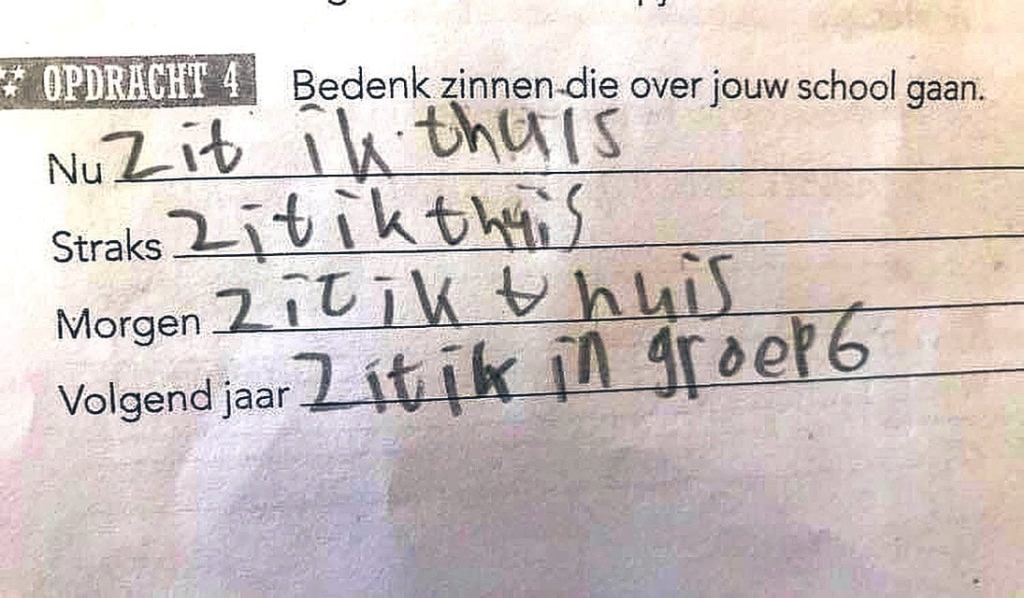 OPDRACHT 4 Bedenk zinnen die over jouw school gaan.
Nu zit ik thuis
Straks zit ik thuis
Morgen zit ik thuis
Volgend jaar zit ik in groep 6